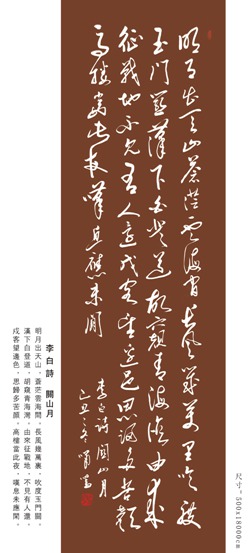 明月出天山蒼茫雲海間長風幾萬里吹度
玉門關漢下白登道胡窺青海灣由來
征戰地不見有人還戍客望邊邑思歸多苦顏
高樓當此夜嘆息未應閒
李白詩關山月
李白詩 關山月
明月出天山，蒼茫雲海間，長風幾萬裏，吹度玉門關，
漢下白登道，胡窺青海灣，由來征戰地，不見有人還，
戍客望邊色，思歸多苦顏，高樓當此夜，嘆息未應閑。
尺寸：500x18000cm